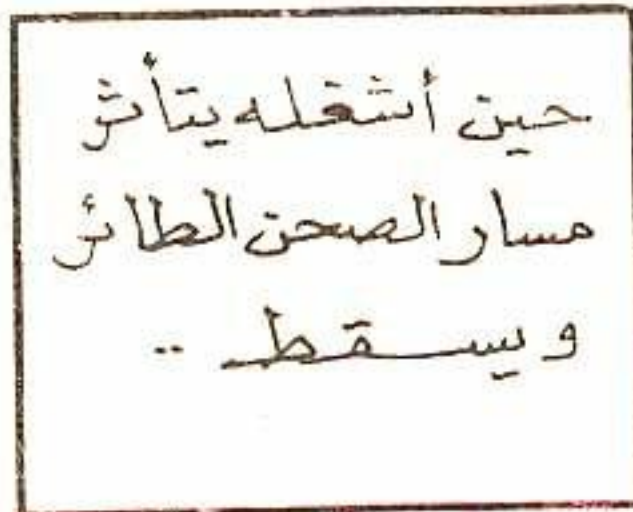 حين أشغله يتأثر
مسار الصحن الطائر
ويسقط ..